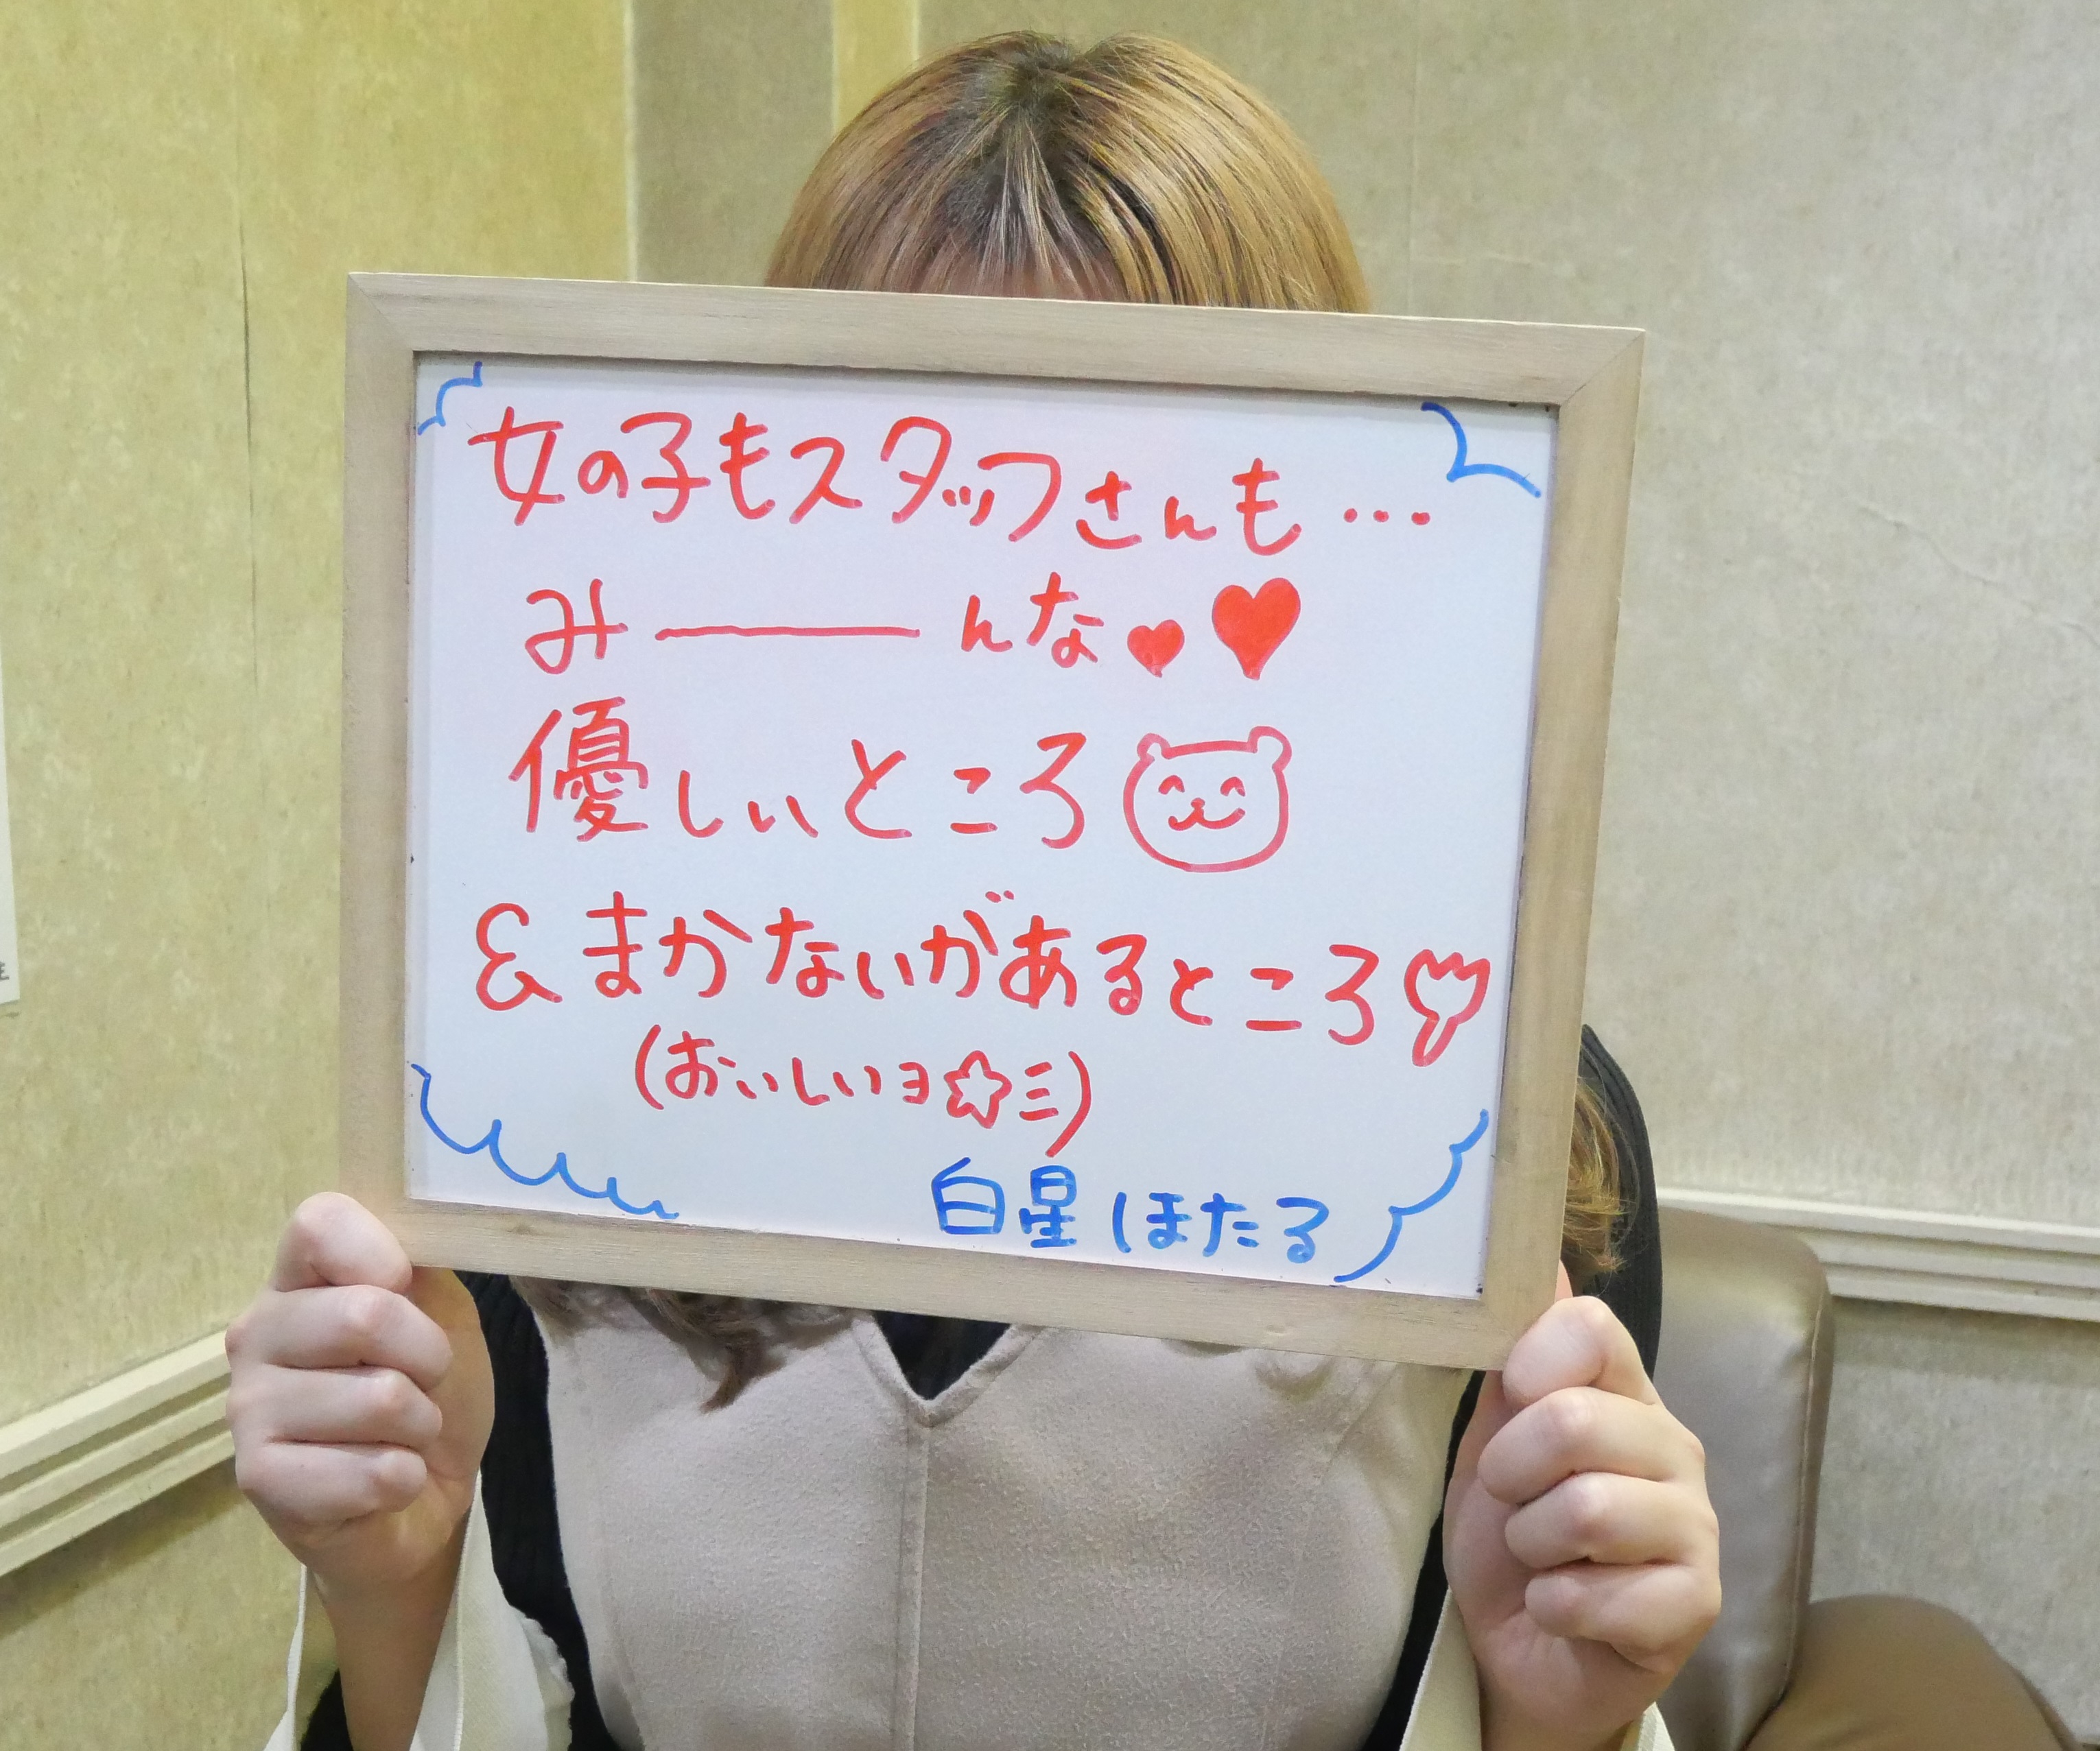 女の子もスタッフさんも…
み――んな♥♥
優しいところ
&まかないがあるところ
(おいしいヨ☆ミ)
白星ほたる